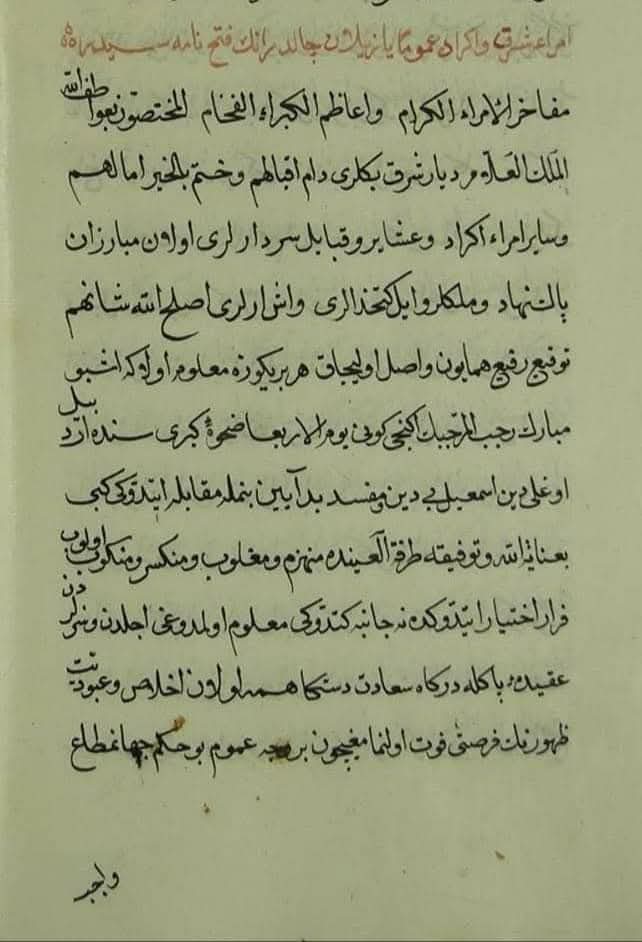 امراء شرق و اكراد عموما يازيلان چالديرانك فتح نامه سيدره
مفاخر الامراء الكرام واعاظم الكبراء الفخام المختصون بعواطف الله
الملك العلام ديار شرق بكلرى دام اقبالهم وختم بالخير امالهم
وساير امراء اكراد وعشاير و قبايل سردارلرى اولان مبارزان
پاك نهاد وملكلر وايل كتخدالرى واش ارلرى اصلح الله شانهم
توقيع رفيع همايون واصل اوليجاق هر بريكوزه معلوم اولا كه اشبو
مبارك رجب المرجبك اكنجى كونى يوم الاربعا ضحوۀ كبرى سنده اردبيل
اوغلى دين اسمعيل بى دين ومفسد بد آيين بنمله مقابله ايتدوكى كبى
بعناية الله وتوفيقه طرفة العينده منهزم ومغلوب ومنكسر ومنكوب اولوب
فرار اختيار ايتدوكده نه جانبه كتدوكى معلوم اولمدوغى اجلدن وسزلردن
عقيدۀ پاكله دركاه سعادت دستكاهمه اولان اخلاص وعبوديت
ظهورنك فرصتى فوت اولنمامغيچون بر وجه عموم بو حكم جهانمطاع
واجب